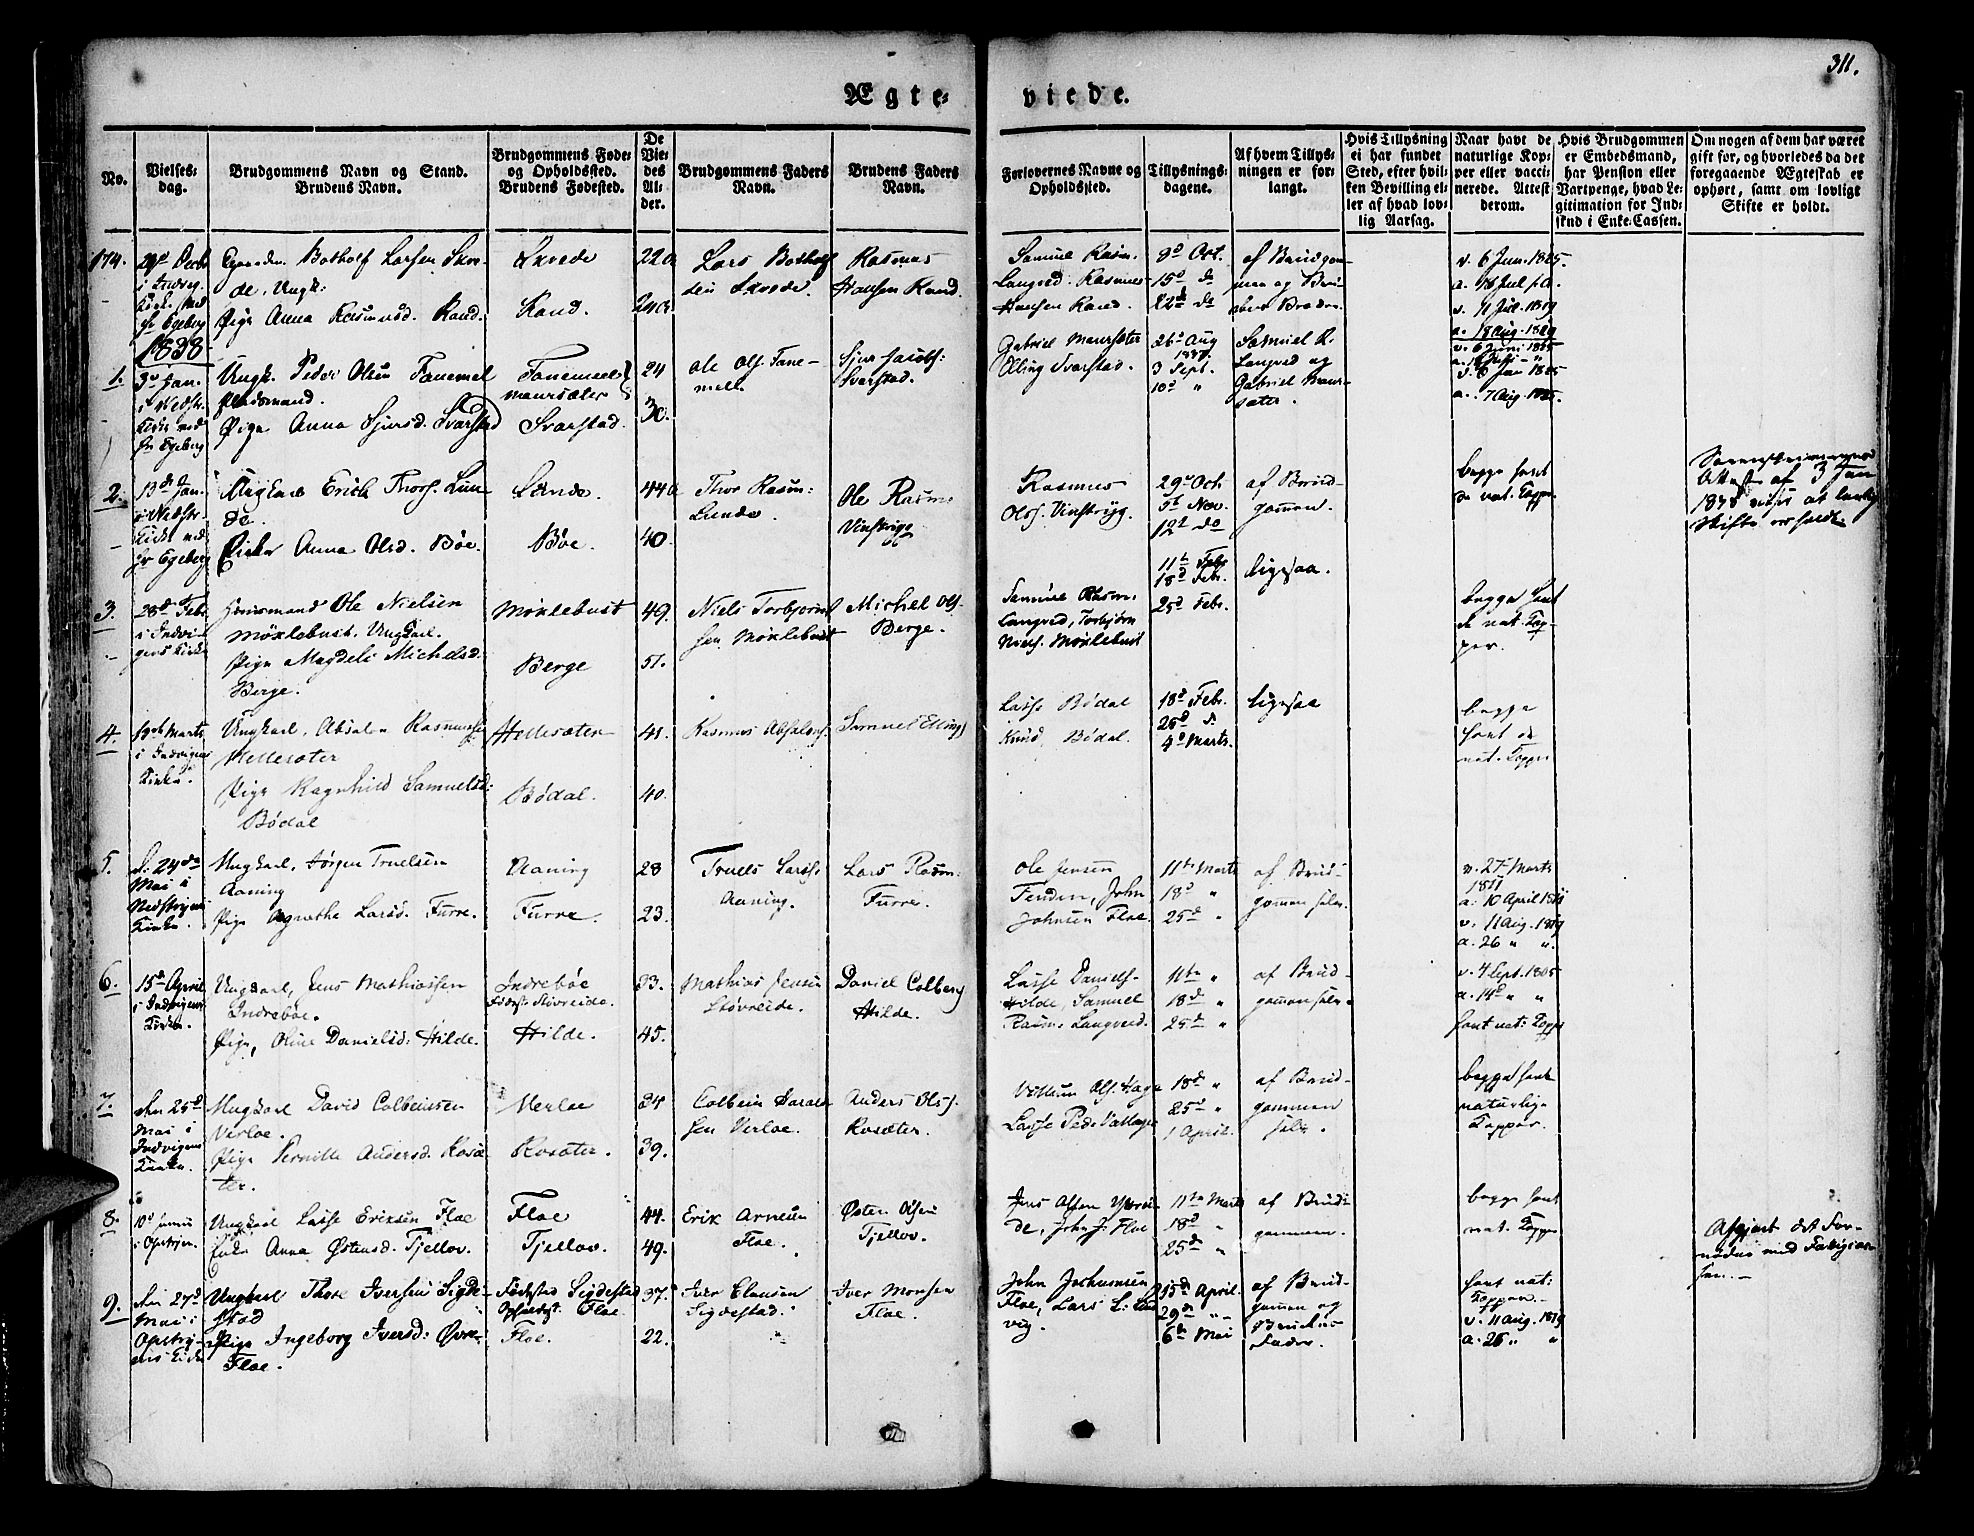 311.
Ægte-
viede.
No.
Vielses-
dag.
Brudgommens Navn og Stand.
Brudens Navn.
Brudgommens Føde-
og Opholdssted.
Brudens Fødested.
De
Vie-
des
Al-
der.
Brudgommens Faders
Navn.
Brudens Faders
Navn.
Forlovernes Navne og
Opholdssted.
Tillysnings-
dagene.
Af hvem Tillys-
ningen er for-
langt.
Hvis Tillysning
ei har fundet
Sted, efter hvil-
ken Bevilling el-
ler af hvad lov-
lig Aarsag.
Naar havt de
naturlige Kop-
per eller vacci-
nerede. Attest
derom.
Hvis Brudgommen
er Embedsmand,
har Pension eller
Vartpenge, hvad Le-
gitimation for Ind-
skud i Enke-Cassen.
Om nogen af dem har været
gift før, og hvorledes da det
foregaaende Ægteskab er
ophørt, samt om lovligt
Skifte er holdt.
174.
Botholf Larsen
de, Ungk:
Pige Anna Rasmusd. Rand.
Rand.
Lars Botholf
Rasmus
Hansen Rand.
Samuel Rasm.
Langved. Rasmus
Hansen Rand.
8d Oct.
15d do
22d do
af Brudgom-
men og Bru-
dens Broder.
v. 6 Jun. 1825.
1838
1.
3d Jan.
Ungk. Peder Olsen Fanemel
Pladsmand.
Pige Anna Sjursd. Svarstad
Fanemel
maursæter
Svarstad.
24
30.
Ole Ols. Fane-
mel.
Sjur Jacobs:
Svarstad.
Gabriel Maursæter
Elling Svarstad.
26d Aug
1837.
3 Sept.
10d "
Samuel R.
Langved og
Gabriel Maur-
sæter.
a. 7 Aug. 1825.
2.
13d Jan.
i Nedstr.
Kirke ved
hr Egeberg
Ungkarl Erich Thors. Lun-
de.
Enke Anna Olsd. Bøe.
Lunde.
Bøe.
44
40.
Thor Rasm:
Lunde.
Ole Rasm:
Vinsrygg
Rasmus
Ols. Vinsrygg.
29d Oct
5t Nov.
12t do
af Brud-
gommen.
begge havt
de nat. Kopp.
Attest af 3 Jan
1838 viser at lovlig
Skifte er holdt.
3.
28d Febr
i Indvi-
gens Kirke
Huusmand Ole Nielsen
Møxlebust. Ungkarl.
Pige Magdeli Michelsd.
Berge.
Møxlebust
Berge
49.
51.
Niels Torbjørn-
sen Møxlebust
Michel Ols.
Berge.
Samuel Rasm:
Langved, Torbjørn
Niels. Møxlebust
11te Febr
18d Febr.
25d Febr.
ligesaa.
begge havt
de nat. Kop-
per.
4.
i Indvigens
Kirke.
Ungkarl. Absalon Rasmuss.
Hellesæter
Pige Ragnhild Samuelsd:
Bødal
Hellesæter
Bødal.
41.
40.
Rasmus Absalons.
Samuel Ellings
Lasse Bødal
Knud Bødal.
18d Febr.
25d d.
4d Marts.
ligesaa
begge
havt de
nat. Kopper
5.
d. 24de
Mai i
Nedstryns
Kirke.
Ungkarl, Jørgen Truelsen
Aaning
Pige Agnethe Larsd. Furre.
Aaning
Furre.
28
23.
Truels Larss.
Aaning.
Lars Rasm:
Furre.
Ole Jensen
Tenden, John
Johnsen Floe.
11te Marts
18d "
25d "
af Brud-
gommen selv.
v. 27 Marts
1811
a. 10 April 1811
v. 11 Aug. 1819
a. 26 " "
6.
15d April
i Indvigens
Kirke.
Ungkarl, Jens Mathiassen
Indrebøe.
Pige, Oline Danielsd: Hilde.
Indrebøe
Fødest. Støvreide.
Hilde.
33.
45.
Mathias Jensen
Støvreide.
Daniel Colbens
Hilde.
Lasse Daniels.
Hilde, Samuel
Rasm. Langved.
11te "
18d "
25d "
af Brud-
gommen selv.
v. 7 Sept. 1805
a. 14d " "
havt nat: Kopper
7.
den 25d
Mai i
Indvigens
Kirke.
Ungkarl David Colbeinsen
Verloe.
Pige Pernille Andersd. Rosæ-
ter.
Verloe
Rosæter.
34
39.
Colbein Harald-
sen Verloe.
Anders Ols.
Rosæter.
Villum Ols. Hage
18d "
25d "
1 April.
af Brud-
gommen
selv.
begge havt
naturlige
Kopper.
8.
10d Junii
i Opstryn.
Ungkarl Lasse Eriksen Floe
Enke Anna Østensd. Tjellov.
Floe
Tjellov.
44.
49.
Erik Arnesen
Floe.
Østen Olsen
Tjellov.
de, John J. Floe
11te Marts
18d "
25d "
af Brud-
gommen.
begge havt
nat. Kopper
Afgjort det For-
nødne med
9.
den 27d
Mai i
Opstry-
ens Kirke
Ungkarl Thore Iversen Sigde-
stad
Pige Ingeborg Iversd: Øvre-
Floe.
Fødested Sigdestad
Opholdst: Floe.
Floe.
37.
22.
Iver Clausen
Sigdestad.
Iver Monsen
Floe.
John Jochumsen
Floe, Lars L: Lud
vig.
15de April.
29de "
6te Mai
af Brud-
gommen og
Brudens
Fader.
havt nat:
Kopper.
v. 11 Aug. 1819
a. 26 " "